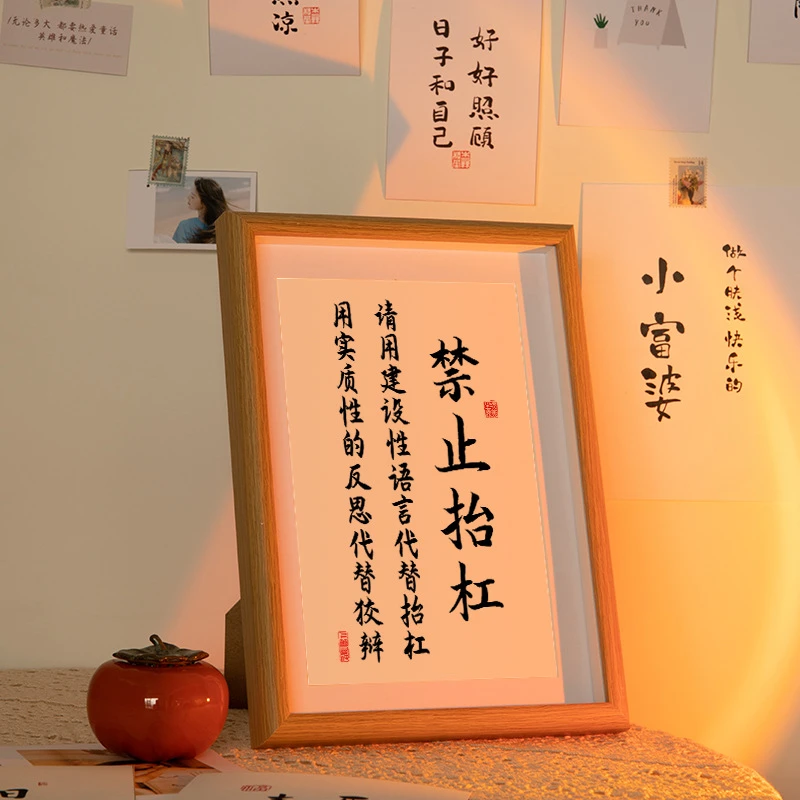 禁止抬杠
请用建设性语言代替抬杠
用实质性的反思代替狡辩
好好照顾
日子和自己
做个肤浅快乐的
小富婆
THANK
YOU
无论多大 都要热爱童话
英雄和魔法!
凉